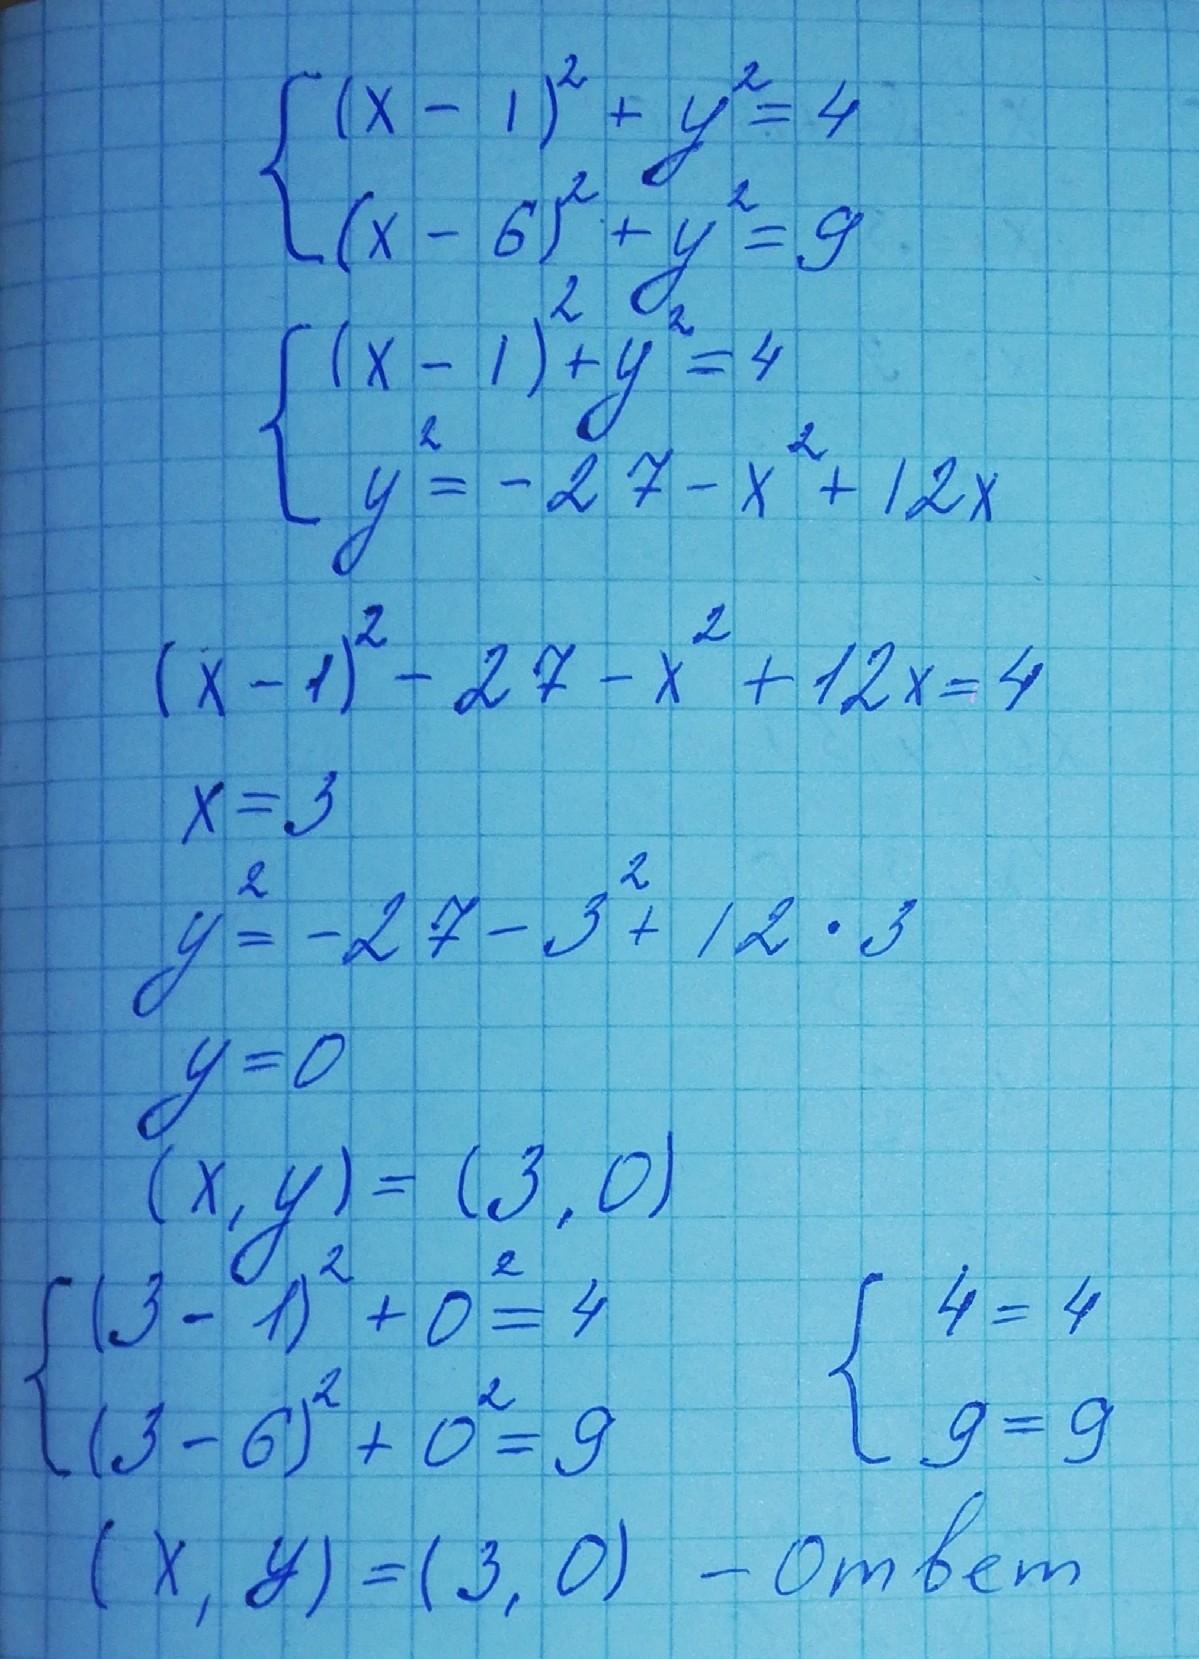 (x - 1)² + y² = 4
(x - 6)² + y² = 9
(x - 1)² + y² = 4
y² = - 27 - x² + 12x
(x - 1)² - 27 - x² + 12x = 4
x = 3
y² = - 27 - 3² + 12 · 3
y = 0
(x, y) = (3, 0)
(3 - 1)² + 0² = 4    4 = 4
(3 - 6)² + 0² = 9    9 = 9
(x, y) = (3, 0) - Ответ